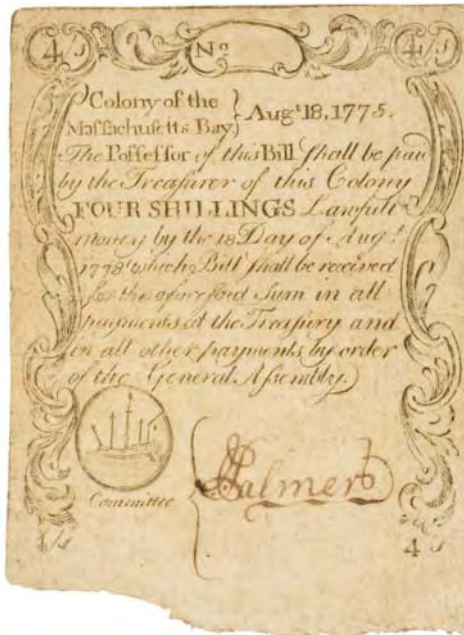 4/s No 4/s
Colony of the
Maſsachusetts Bay } Augt. 18, 1775.
The Poſseſsor of this Bill ſhall be paid
by the Treaſurer of this Colony
FOUR SHILLINGS Lawfull
Money by the 18 Day of Augt.
1778 which Bill ſhall be received
for the aforeſaid Sum in all
payments at the Treaſury and
in all other payments by order
of the General Aſsembly.
Committee
Palmer
4/s 4/s